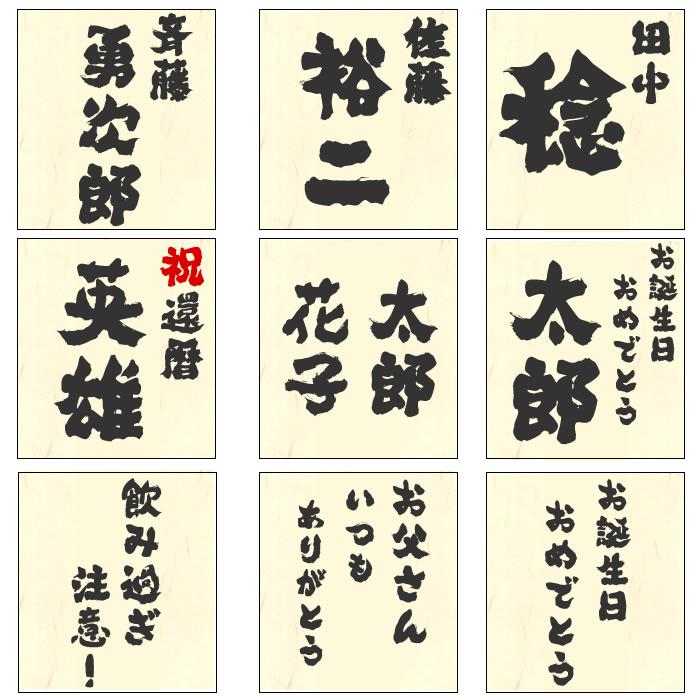 斉藤
勇次郎
佐藤
裕二
田中
稔
祝還暦
英雄
太郎
花子
お誕生日
おめでとう
太郎
飲み過ぎ
注意！
お父さん
いつも
ありがとう
お誕生日
おめでとう